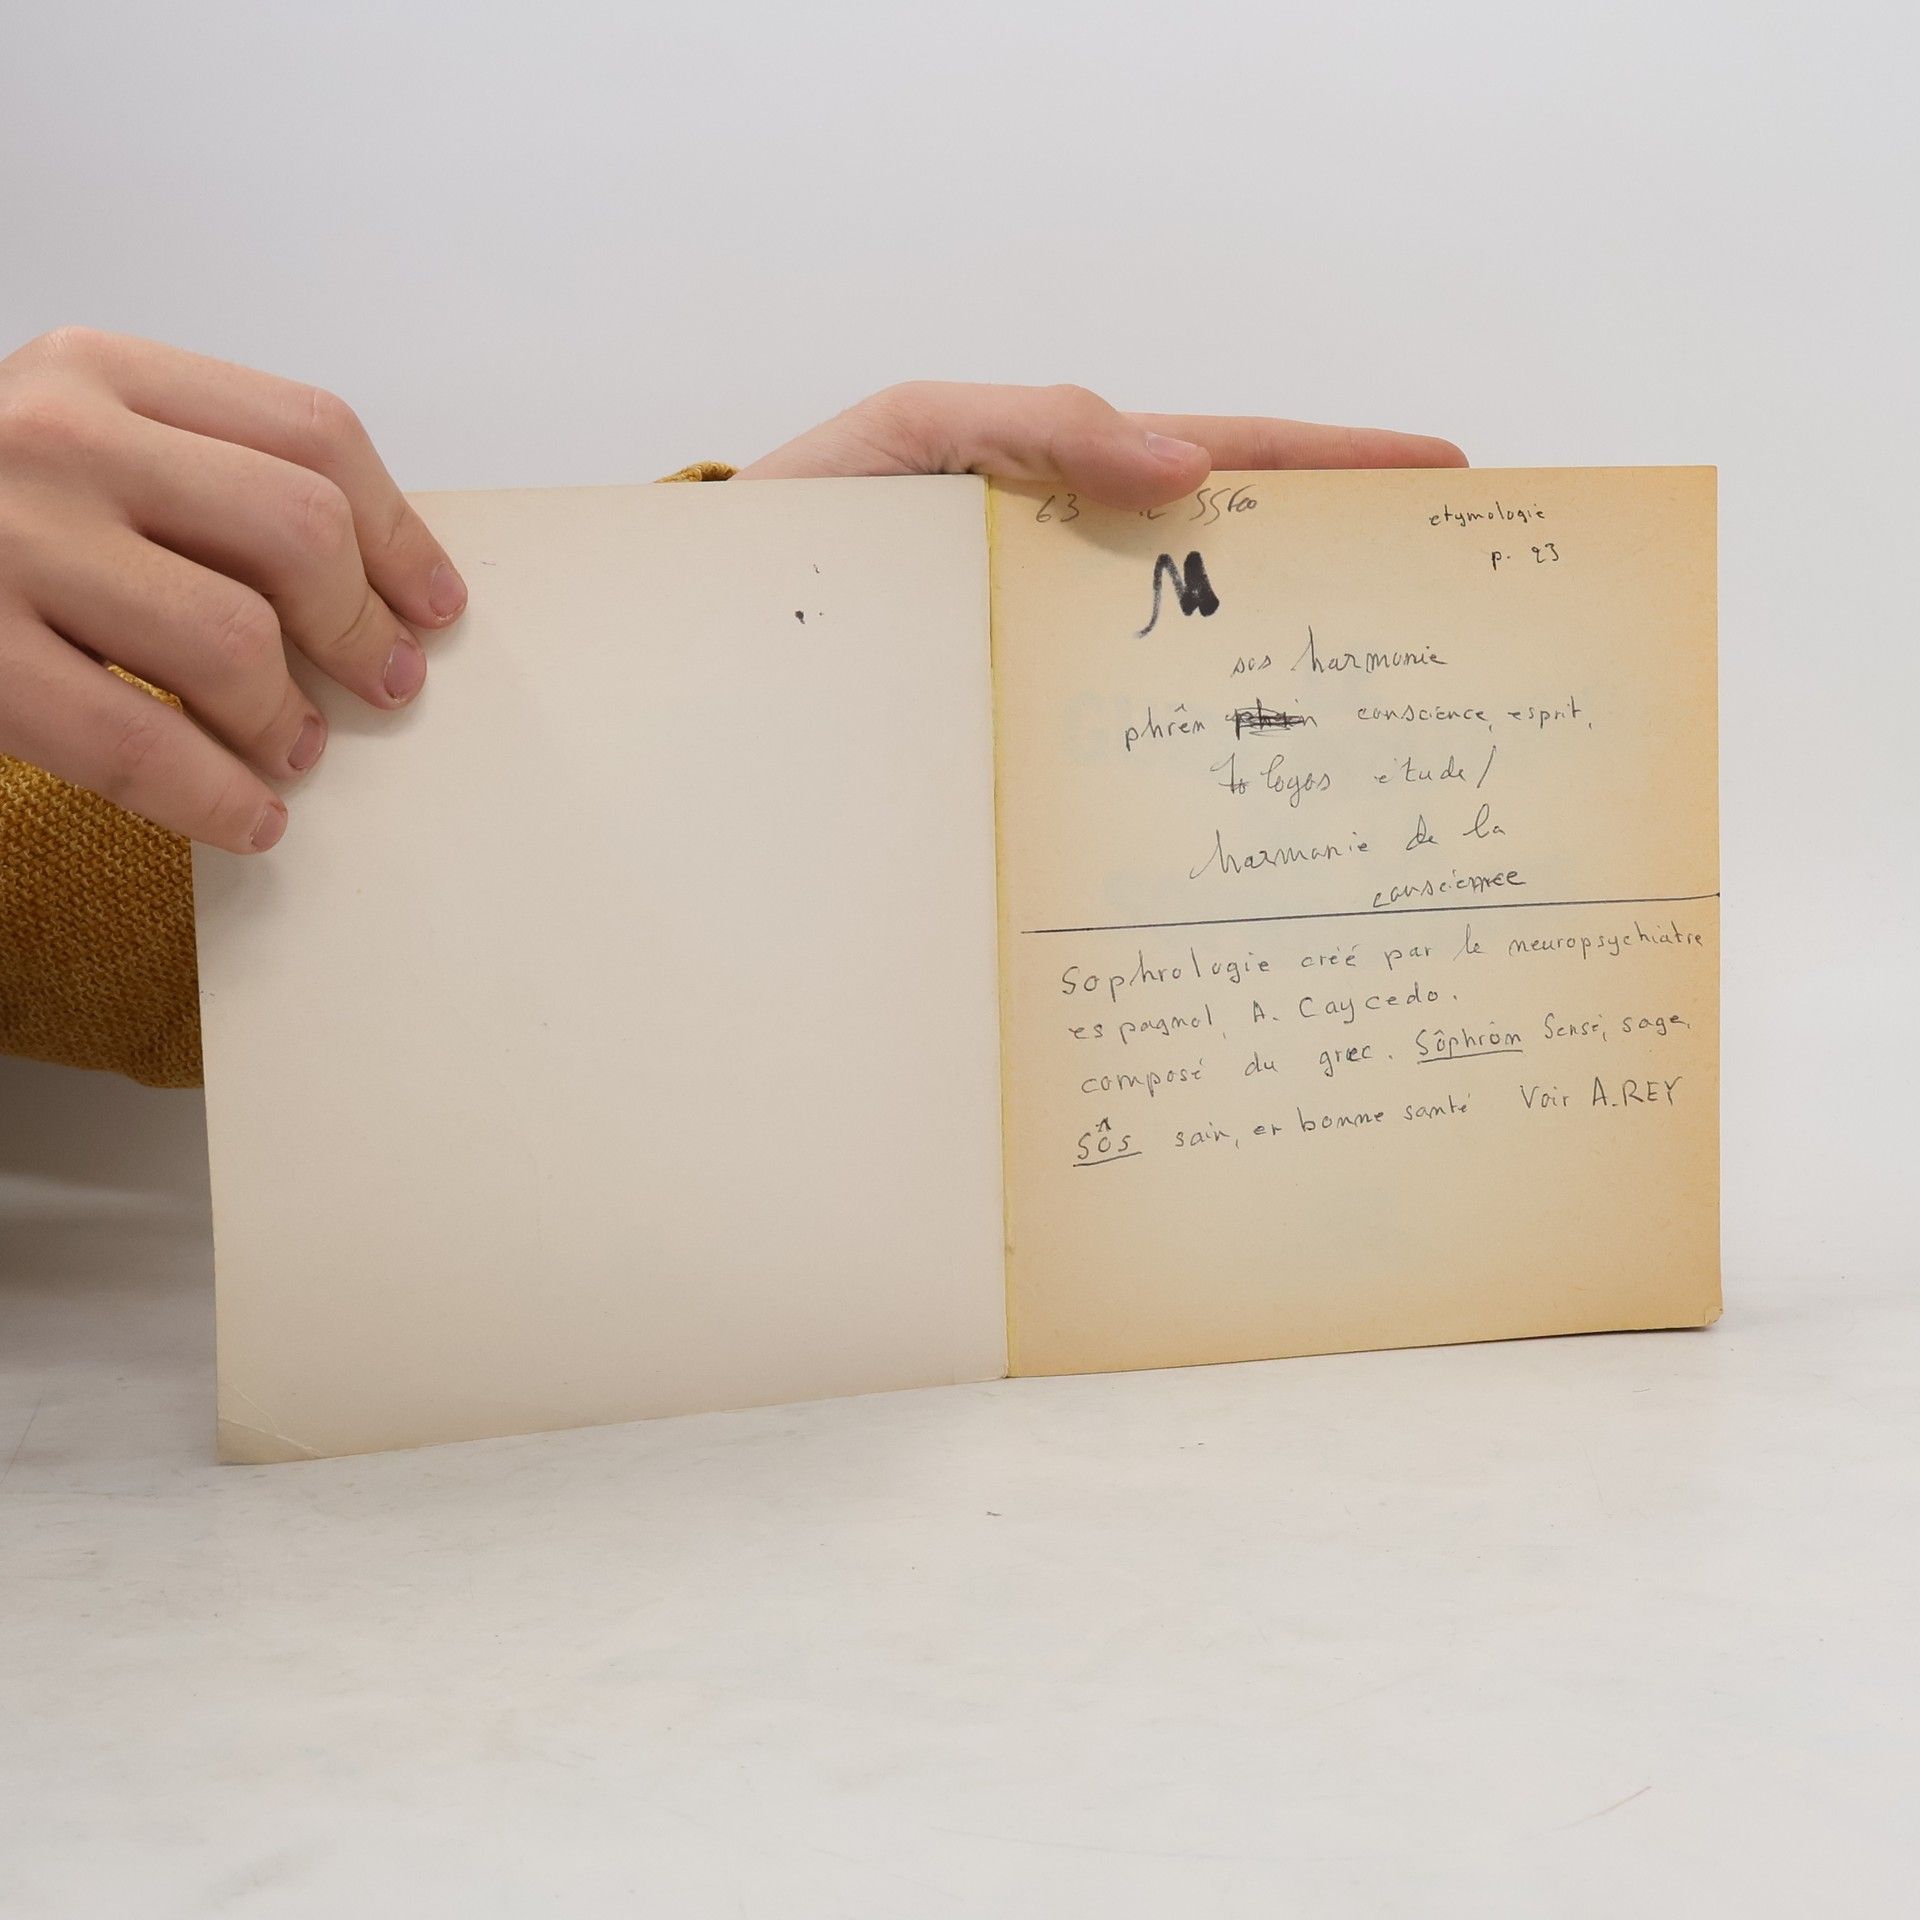 63
etymologie
p. 23
sos harmonie
phrên conscience, esprit,
logos étude/
harmonie de la
conscience
Sophrologie créé par le neuropsychiatre
espagnol, A. Caycedo.
composé du grec. Sôphrôn Sensé, sage,
Sôs sain, en bonne santé Voir A.REY